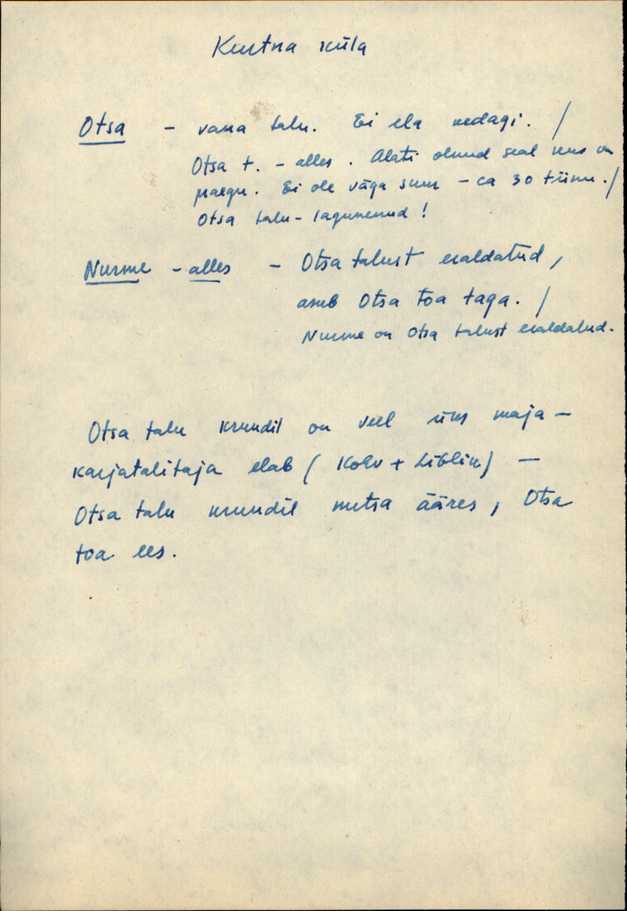 Kurtna küla
Otsa - vana talu. Ei ela kedagi. /
Otsa t. - alles. Alati olnud seal kus on
praegu. Ei ole väga suur - ca 30 tiinu. /
Otsa talu - lagunenud!
Nurme - alles - Otsa talust eraldatud,
asub Otsa toa taga. /
Nurme on Otsa talust eraldatud.
Otsa talu krundil on veel üks maja -
karjatalitaja elab (Kolv + Liblik) -
Otsa talu krundil metsa ääres, Otsa
toa ees.